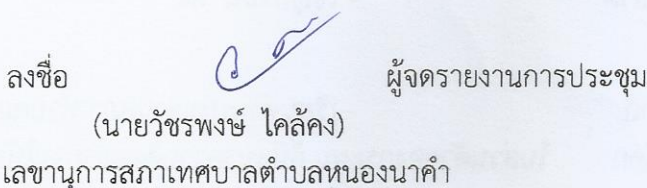 ลงชื่อ ผู้จดรายงานการประชุม
(นายวัชรพงษ์ ไคล้คง)
เลขานุการสภาเทศบาลตำบลหนองนาคำ